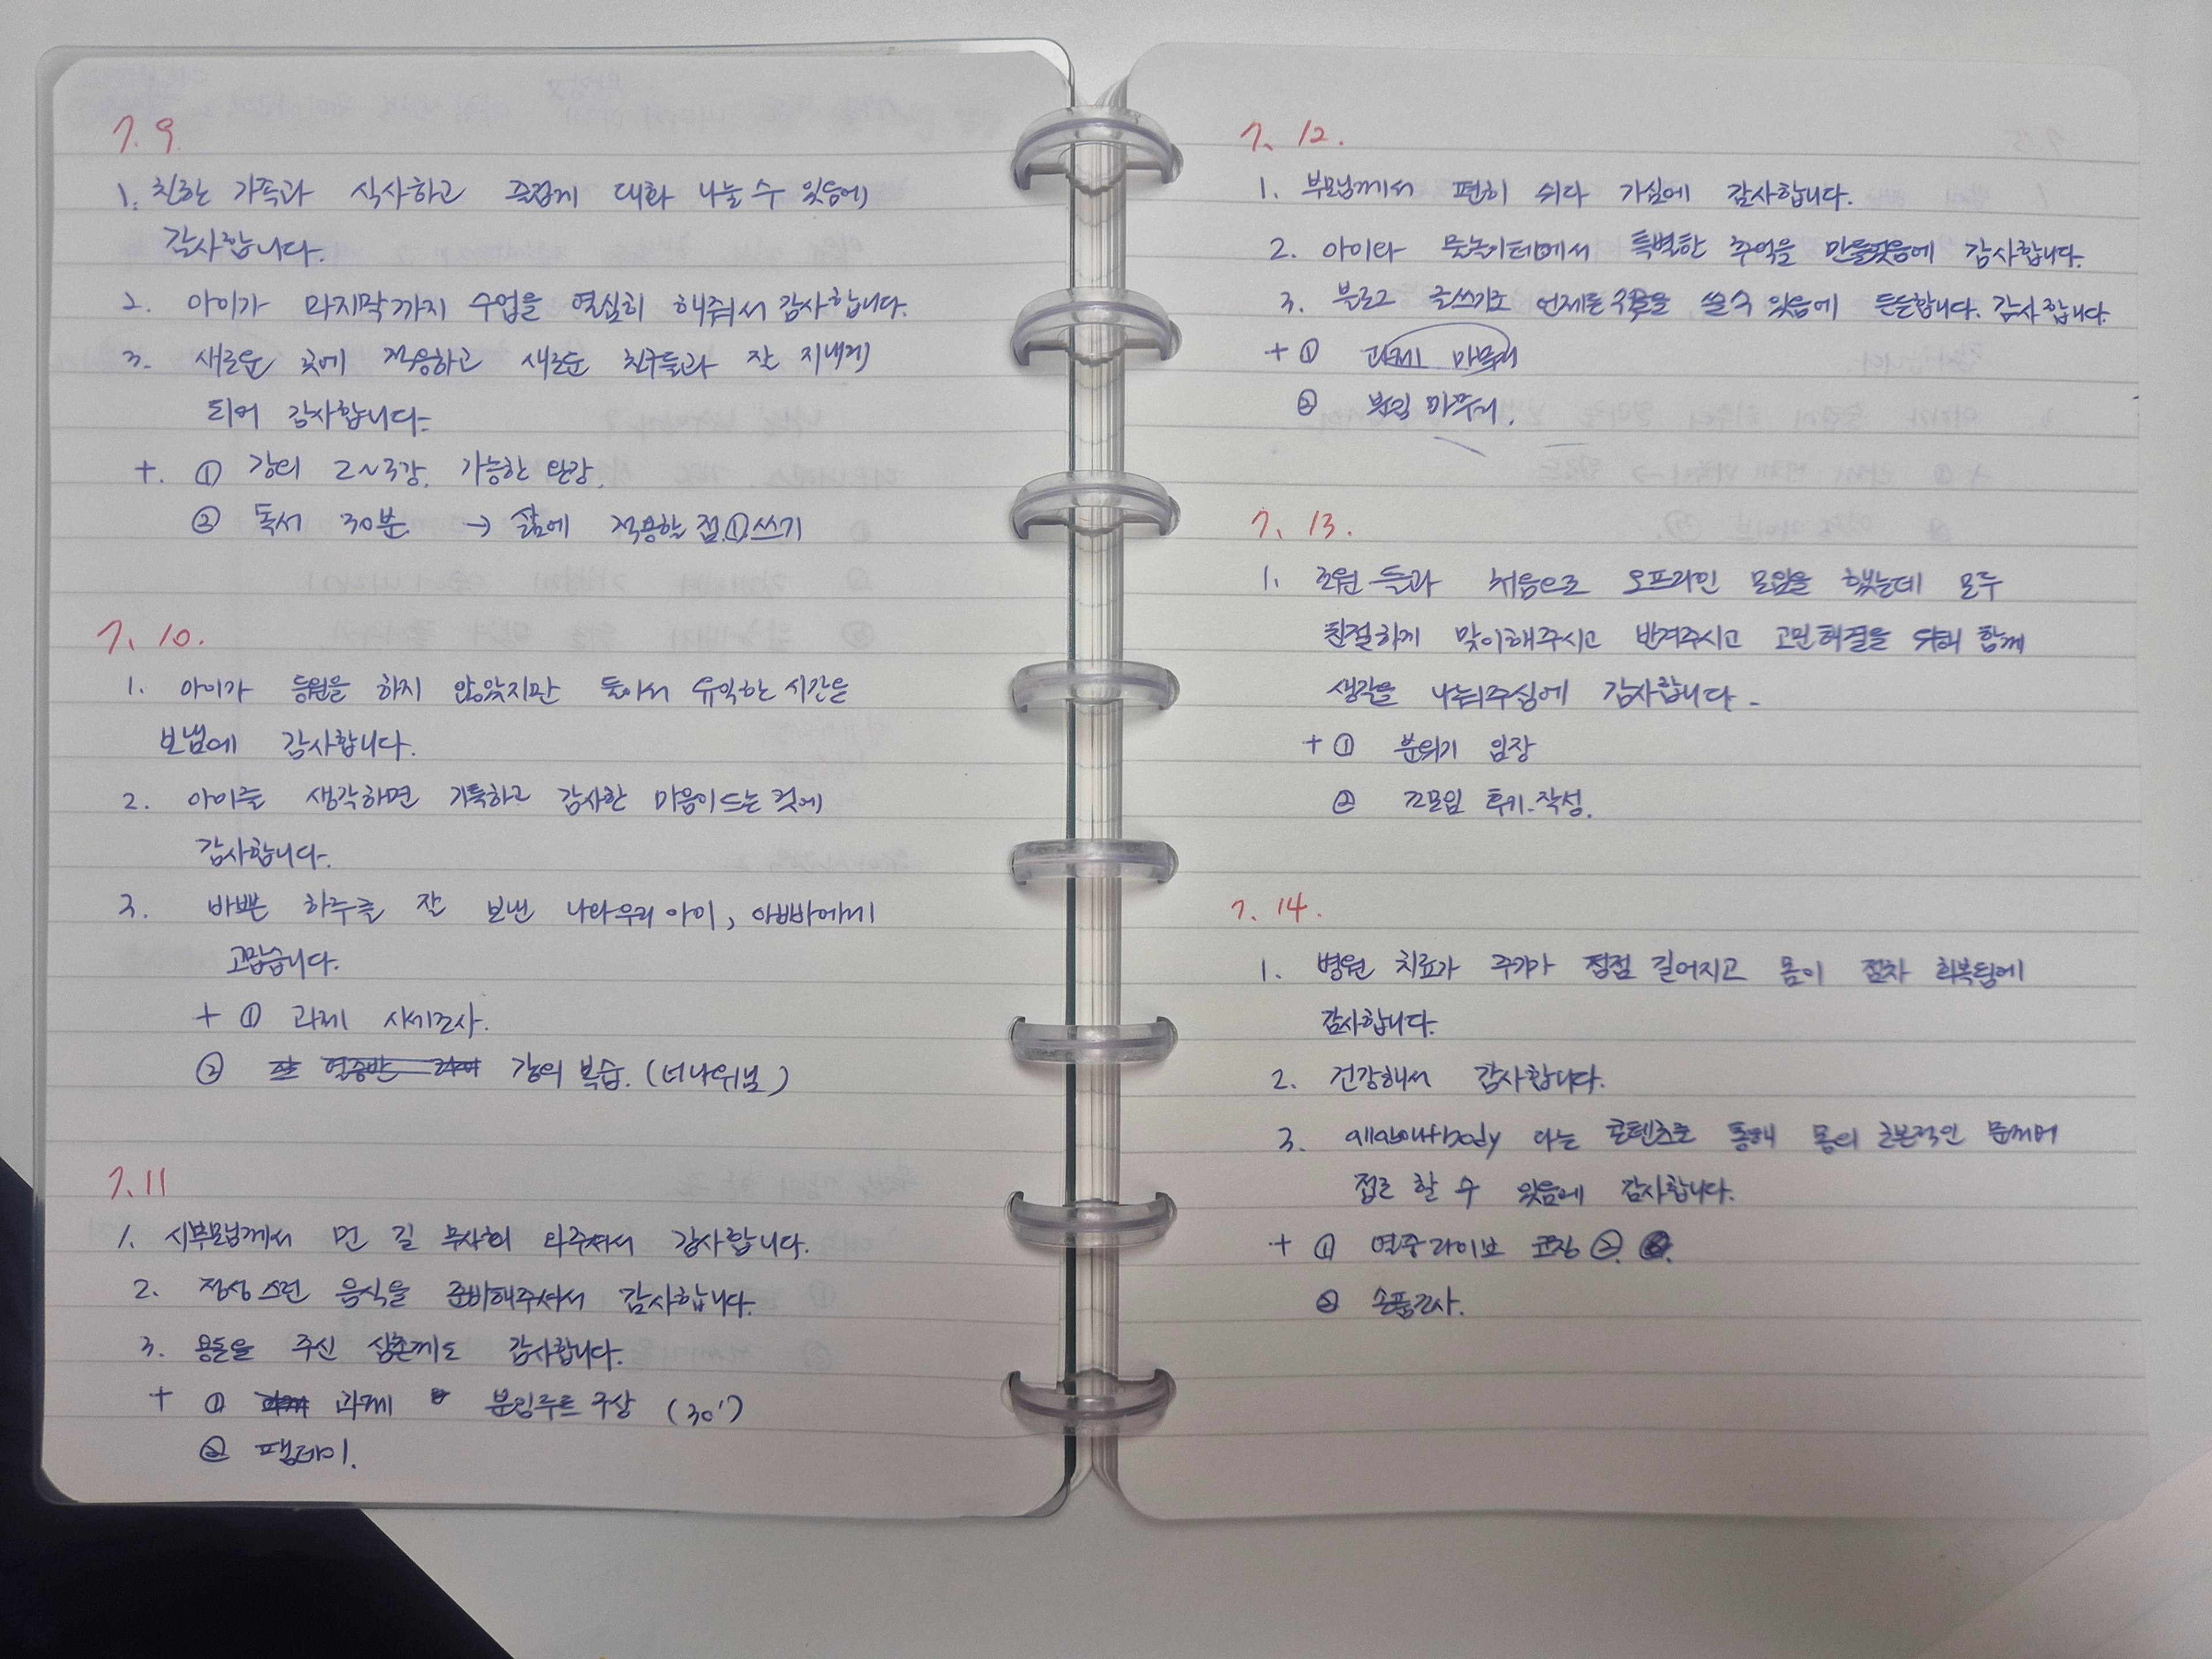 7. 9.
1. 친한 가족과 식사하고 즐겁게 대화 나눌 수 있음에
감사합니다.
2. 아이가 마지막까지 수업을 열심히 해줘서 감사합니다.
3. 새로운 곳에 적응하고 새로운 친구들과 잘 지내게
되어 감사합니다.
+. ① 강의 2~3강. 가능한 완강.
② 독서 30분 → 삶에 적용할 점 ① 쓰기
7. 10.
1. 아이가 등원을 하지 않았지만 돌아서 유익한 시간을
보냄에 감사합니다.
2. 아이를 생각하면 기특하고 감사한 마음이 드는 것에
감사합니다.
3. 바쁜 하루를 잘 보낸 나와 우리 아이, 아빠에게
고맙습니다.
+ ① 과제 시세조사.
② 강의 복습. (너나위님)
7. 11
1. 시부모님께서 먼 길 무사히 와주셔서 감사합니다.
2. 정성스런 음식을 준비해주셔서 감사합니다.
3. 용돈을 주신 삼촌께도 감사합니다.
+ ① 과제 분임루트 구상 (30')
② 팸데이.
7. 12.
1. 부모님께서 편히 쉬다 가심에 감사합니다.
2. 아이와 물놀이터에서 특별한 추억을 만들었음에 감사합니다.
3. 블로그 글쓰기로 언제든 글을 쓸 수 있음에 든든합니다. 감사합니다.
+ ① 과제 마무리
② 분임 마무리.
7. 13.
1. 조원들과 처음으로 오프라인 모임을 했는데 모두
친절하게 맞이해주시고 반겨주시고 고민해결을 위해 함께
생각을 나눠주심에 감사합니다.
+ ① 분위기 임장
② 조모임 후기 작성.
7. 14.
1. 병원 치료가 주기가 점점 길어지고 몸이 점차 회복됨에
감사합니다.
2. 건강해서 감사합니다.
3. 라는 콘텐츠를 통해 몸의 근본적인 문제에
접근 할 수 있음에 감사합니다.
+ ① 열중라이브 코칭 ②.
② 손품조사.